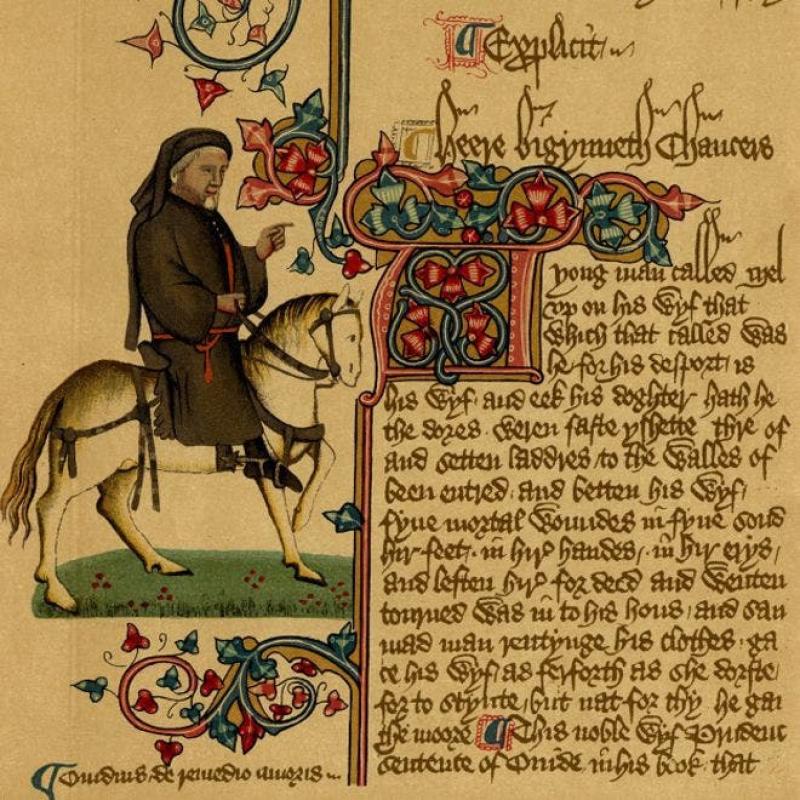 Explicit
Heere bigynneth Chaucers
A yong man called Mel
vp on his Wyf that
Which that called Was
he for his desport is
his Wyf and eek his doghter hath he
the dores Weren faste yshette thre of
and setten laddres to the Walles of
been entred and betten his Wyf
fyue mortal Woundes in fyue sond
hir feet in hir handes in hir erys
and leften hir for deed and Wenten
tourned Was in to his hous and sau
mad man rentynge his clothes ga
ce his Wyf as ferforth as she dorste
for to stynte but nat for thy he gan
the moore This noble Wyf Prudenc
sentence of Ouide in his book that
Ouidius de remedio amoris